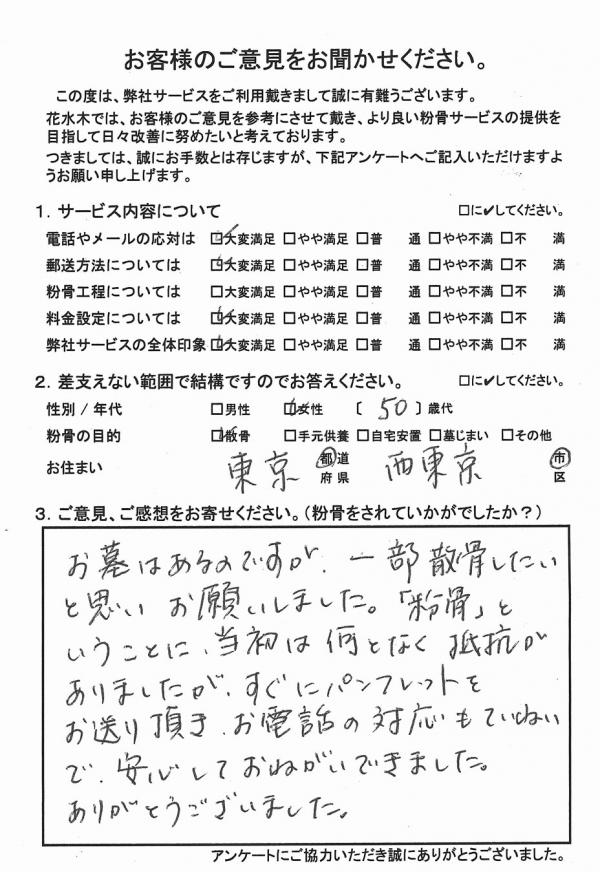 お客様のご意見をお聞かせください。
この度は、弊社サービスをご利用戴きまして誠に有難うございます。
花水木では、お客様のご意見を参考にさせて戴き、より良い粉骨サービスの提供を
目指して日々改善に努めたいと考えております。
つきましては、誠にお手数とは存じますが、下記アンケートへご記入いただけますよ
うお願い申し上げます。
1. サービス内容について　□に✔してください。
電話やメールの応対は ☑大変満足 □やや満足 □普　通 □やや不満 □不　満
郵送方法については ☑大変満足 □やや満足 □普　通 □やや不満 □不　満
粉骨工程については □大変満足 □やや満足 □普　通 □やや不満 □不　満
料金設定については ☑大変満足 □やや満足 □普　通 □やや不満 □不　満
弊社サービスの全体印象 ☑大変満足 □やや満足 □普　通 □やや不満 □不　満
2. 差支えない範囲で結構ですのでお答えください。　□に✔してください。
性別 / 年代 □男性 ☑女性 〔 50 〕歳代
粉骨の目的 ☑散骨 □手元供養 □自宅安置 □墓じまい □その他
お住まい 東京 都道府県 西東京 市区
3. ご意見、ご感想をお寄せください。(粉骨をされていかがでしたか?)
お墓はあるのですが、一部散骨したい
と思い お願いしました。「粉骨」と
いうことに、当初は何となく抵抗が
ありましたが、すぐにパンフレットを
お送り頂き、お電話の対応もていねい
で、安心しておねがいできました。
ありがとうございました。
アンケートにご協力いただき誠にありがとうございました。